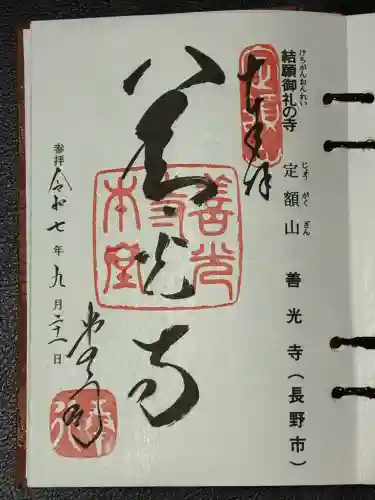 結願御礼の寺
けちがんおんれい
定額山
じょうがくざん
善光寺(長野市)
奉拝
定額山
善光寺
善光寺本堂
参拝
令和七年九月二十一日